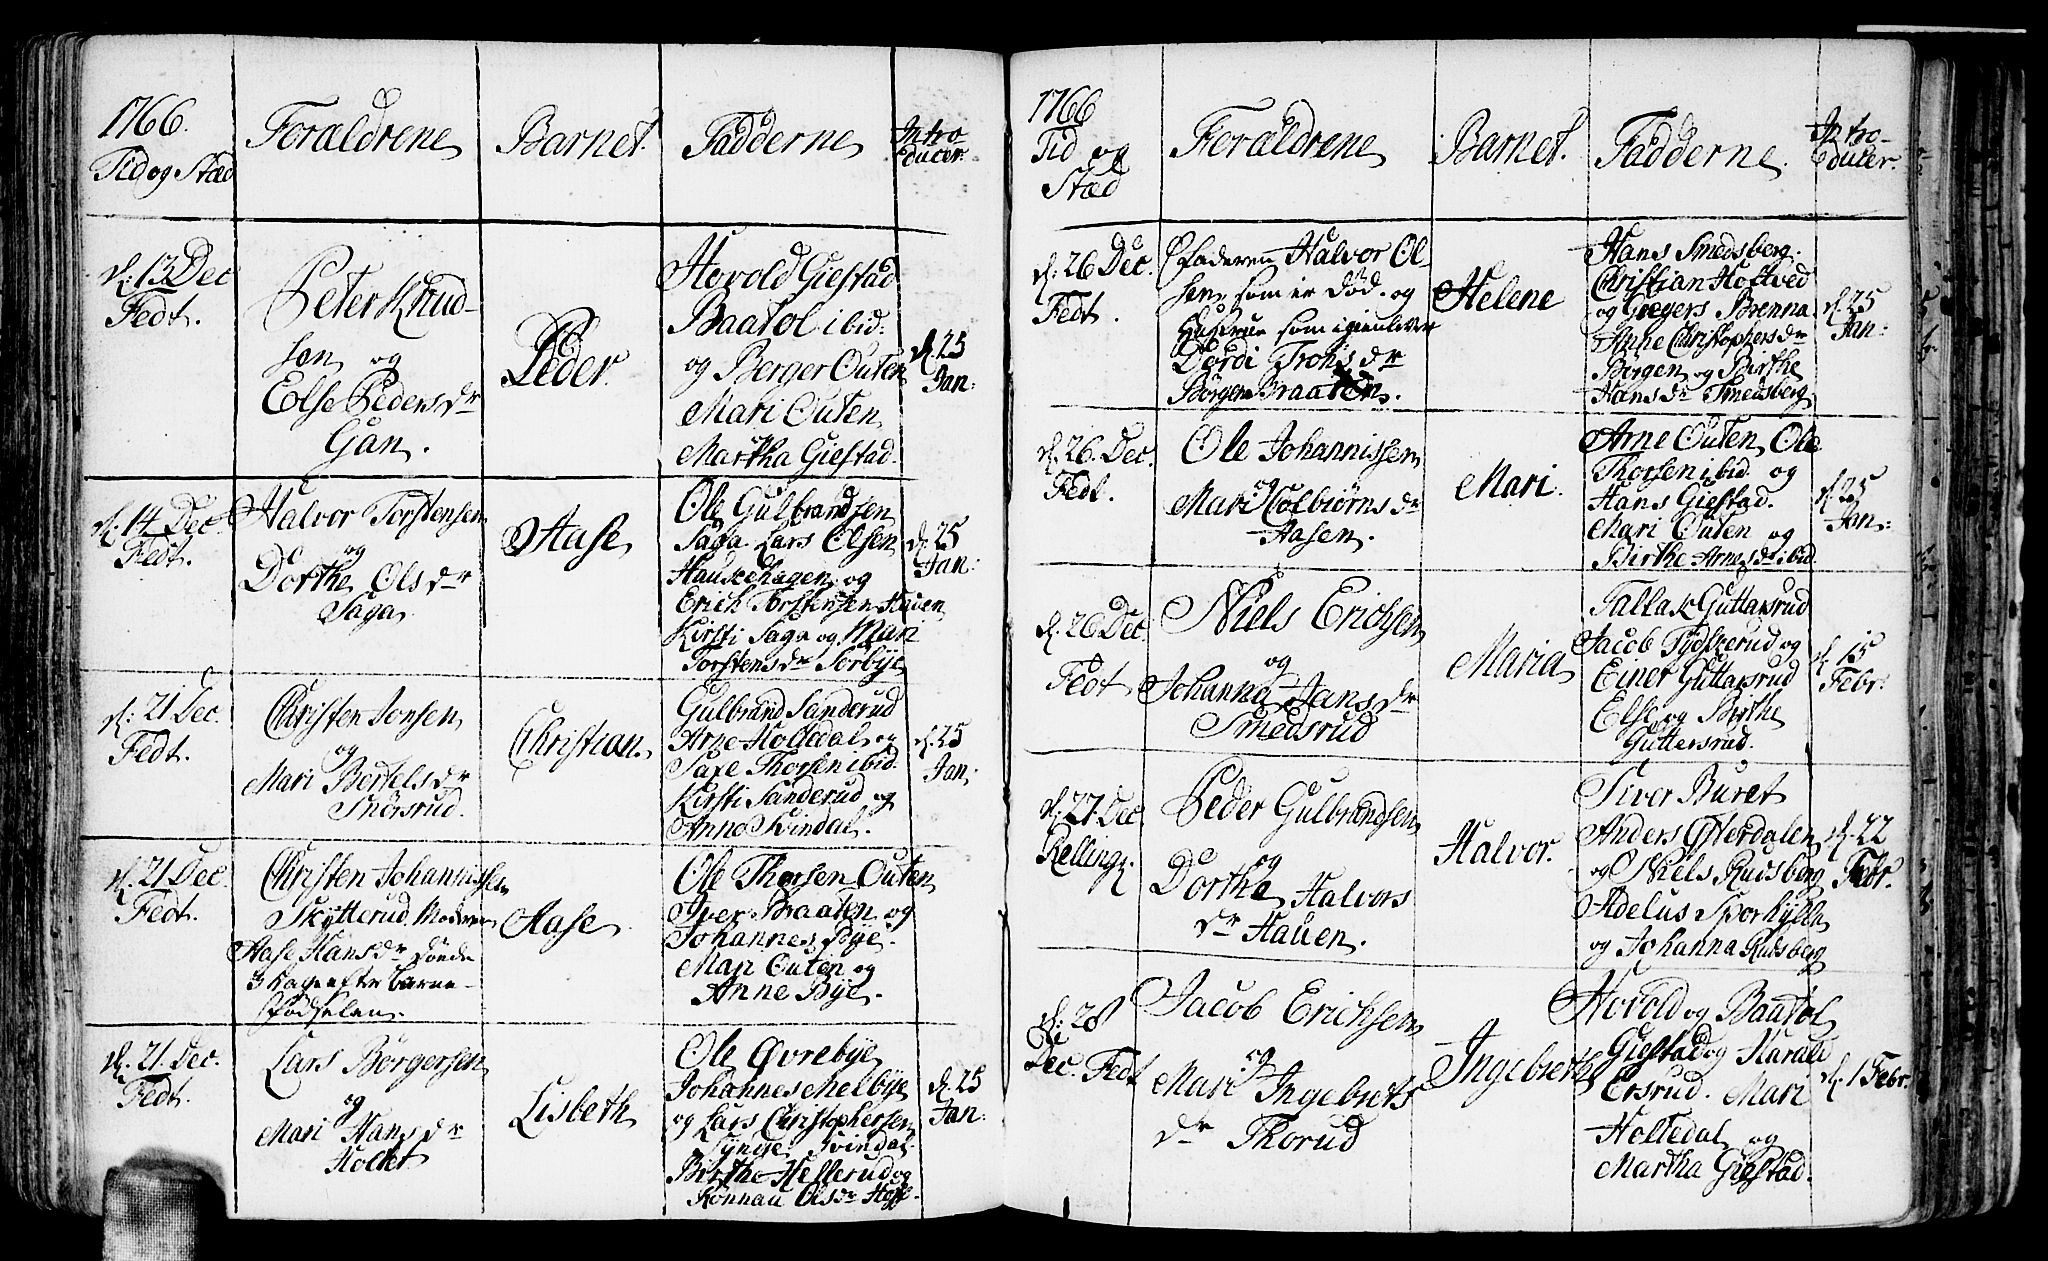 1766.
Tid og Stæd
Forældrene
Barnet.
Fadderne
Intro
ducer.
d: 13 Dec
Fedt.
Peter Knud-
sen og
Else Peders dr
Gan.
Peder.
Hovold Giestad
Baatol ibid:
og Berger Outen
Mari Outen
Martha Giestad.
d. 25
Jan:
d: 14 Dec
Fedt.
Halvor Torstensen
og
Dorthe Ols dr
Saga.
Aase
Ole Gulbrandsen
Saga Lars Olsen
Hauschagen og
Erich Torstensen Hauen
Kirsti Saga og Mari
Torstens dr Sorbye
d. 25
Jan:
d: 21 Dec.
Fedt.
Christen Jonsen
og
Mari Bertels dr
Snorsrud.
Christian
Gulbrand Sanderud
Arne Holtedal og
Saxe Thorsen ibid.
Kirsti Sanderud og
Anne Svindal.
d. 25
Jan:
d. 21 Dec.
Fedt.
Christen Johannissen
Skytterud Moderen
Aase Hans dr døde
3 dage efter barne-
fødselen.
Aase.
Ole Thorsen Outen
Iver Braaten og
Johannes Bye.
Mari Outen og
Anne Bye.
d. 21. Dec.
Fedt.
Lars Børgersen
og
Mari Hans dr
Holtet
Lisbeth
Ole Øvrebye
Johannes Melbye
og Lars Christophersen
Svindal.
Birthe Hellerud og
Rønnau Ols dr
d. 25
Jan:
1766
Tid og
Stæd
Forældrene
Barnet.
Fadderne.
Intro-
ducer.
d: 26 Dec.
Fedt.
Faderen Halvor Ol-
sen som er død. og
Hustrue som igienlever
Dordi Trohls dr
Børgen Braaten.
Helene
Hans Smedsberg.
Christian Hoftved
og Gregers Brenna
Anne Christophers dr
Børgen og Birthe
Hans dr Smedsberg
d. 25
Jan:
d. 26. Dec.
Fedt.
Ole Johannissen
og
Mari Colbiørns dr
Aasen.
Mari.
Arne Outen, Ole
Thorsen ibid og
Hans Giestad.
Mari Outen og
Birthe Arnes dr ibid.
d. 25
Jan:
d. 26 Dec.
Fedt.
Niels Erichsen
og
Johanna Jans dr
Smedsrud
Maria
Tallak Guttersrud
Jacob Tydskerud og
Einer Guttersrud
Else og Birthe
Guttersrud.
d. 15
Febr:
d. 27 Dec.
Kelling.
Peder Gulbrandsen
og
Dorthe Halvors
dr Hauen.
Halvor.
Siver Buret
Anders Østerdalen
og Niels Rudsberg
Adelus Sporhylle
og Johanna Rudsberg
d. 22
Febr.
d. 28
Dec. Fedt
Jacob Erichsen
og
Mari Ingebrets
dr Thorud
Ingebreth
Hovold og Baatøl
Giestad og Harald
Ersrud. Mari
Holtedal og
Martha Giestad.
d. 1 Febr.